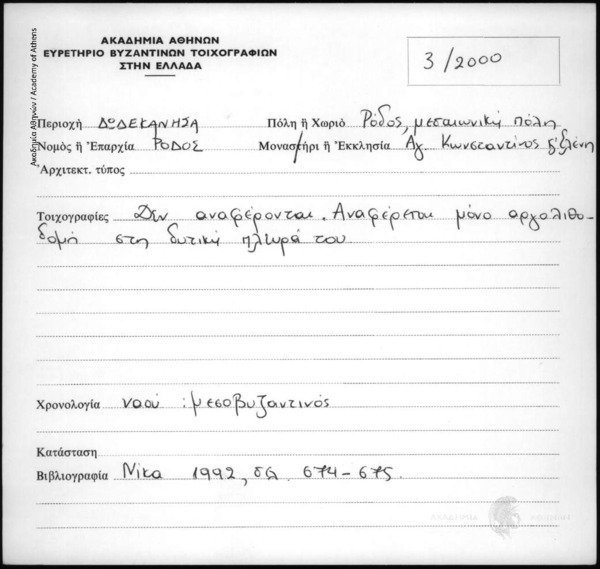 ΑΚΑΔΗΜΙΑ ΑΘΗΝΩΝ
ΕΥΡΕΤΗΡΙΟ ΒΥΖΑΝΤΙΝΩΝ ΤΟΙΧΟΓΡΑΦΙΩΝ
ΣΤΗΝ ΕΛΛΑΔΑ
3/2000
Ακαδημία Αθηνών / Academy of Athens
Περιοχὴ ΔΩΔΕΚΑΝΗΣΑ Πόλη ἢ Χωριό Ρόδος, μεσαιωνική πόλη
Νομὸς ἢ Ἐπαρχία ΡΟΔΟΣ Μοναστήρι ἢ Ἐκκλησία Αγ. Κωνσταντίνος & Ελένη
Ἀρχιτεκτ. τύπος
Τοιχογραφίες Δεν αναφέρονται. Αναφέρεται μόνο αργολιθο-
δομή στη δυτική πλευρά του
Χρονολογία ναού : μεσοβυζαντινός
Κατάσταση
Βιβλιογραφία Νίκα 1992, σσ. 674-675.
ΑΚΑΔΗΜΙΑ ΑΘΗΝΩΝ